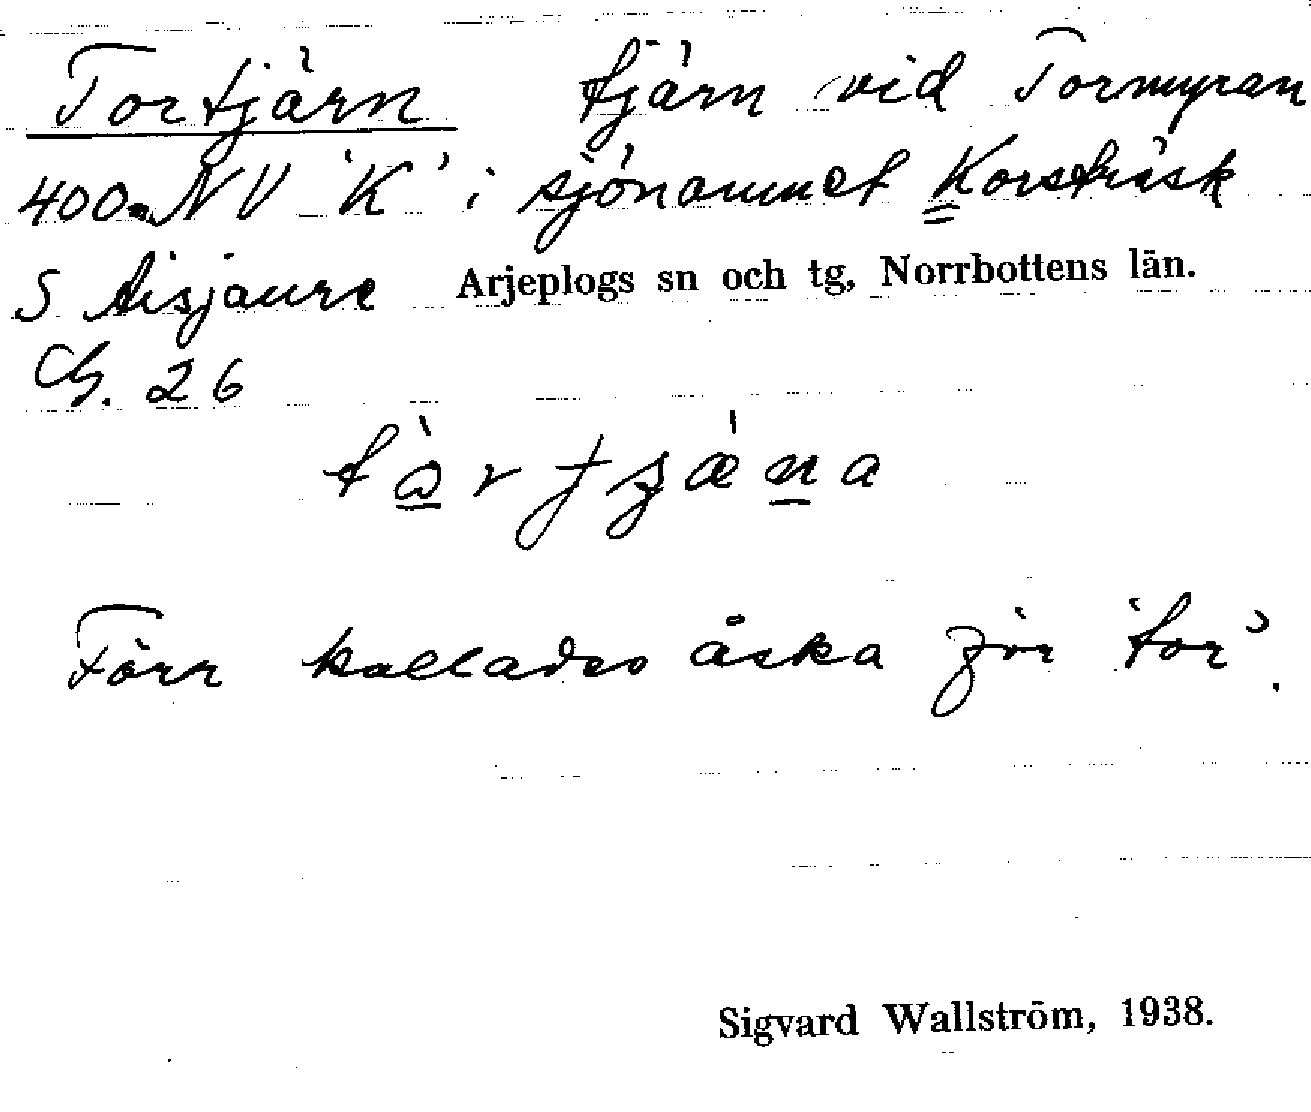 Tortjärn tjärn vid Tormyran
400 m NV 'K' i sjönamnet Korsträsk
S Aisjaure Arjeplogs sn och tg, Norrbottens län.
G. 26
Förr kallades åska för 'tor'.
Sigvard Wallström, 1938.